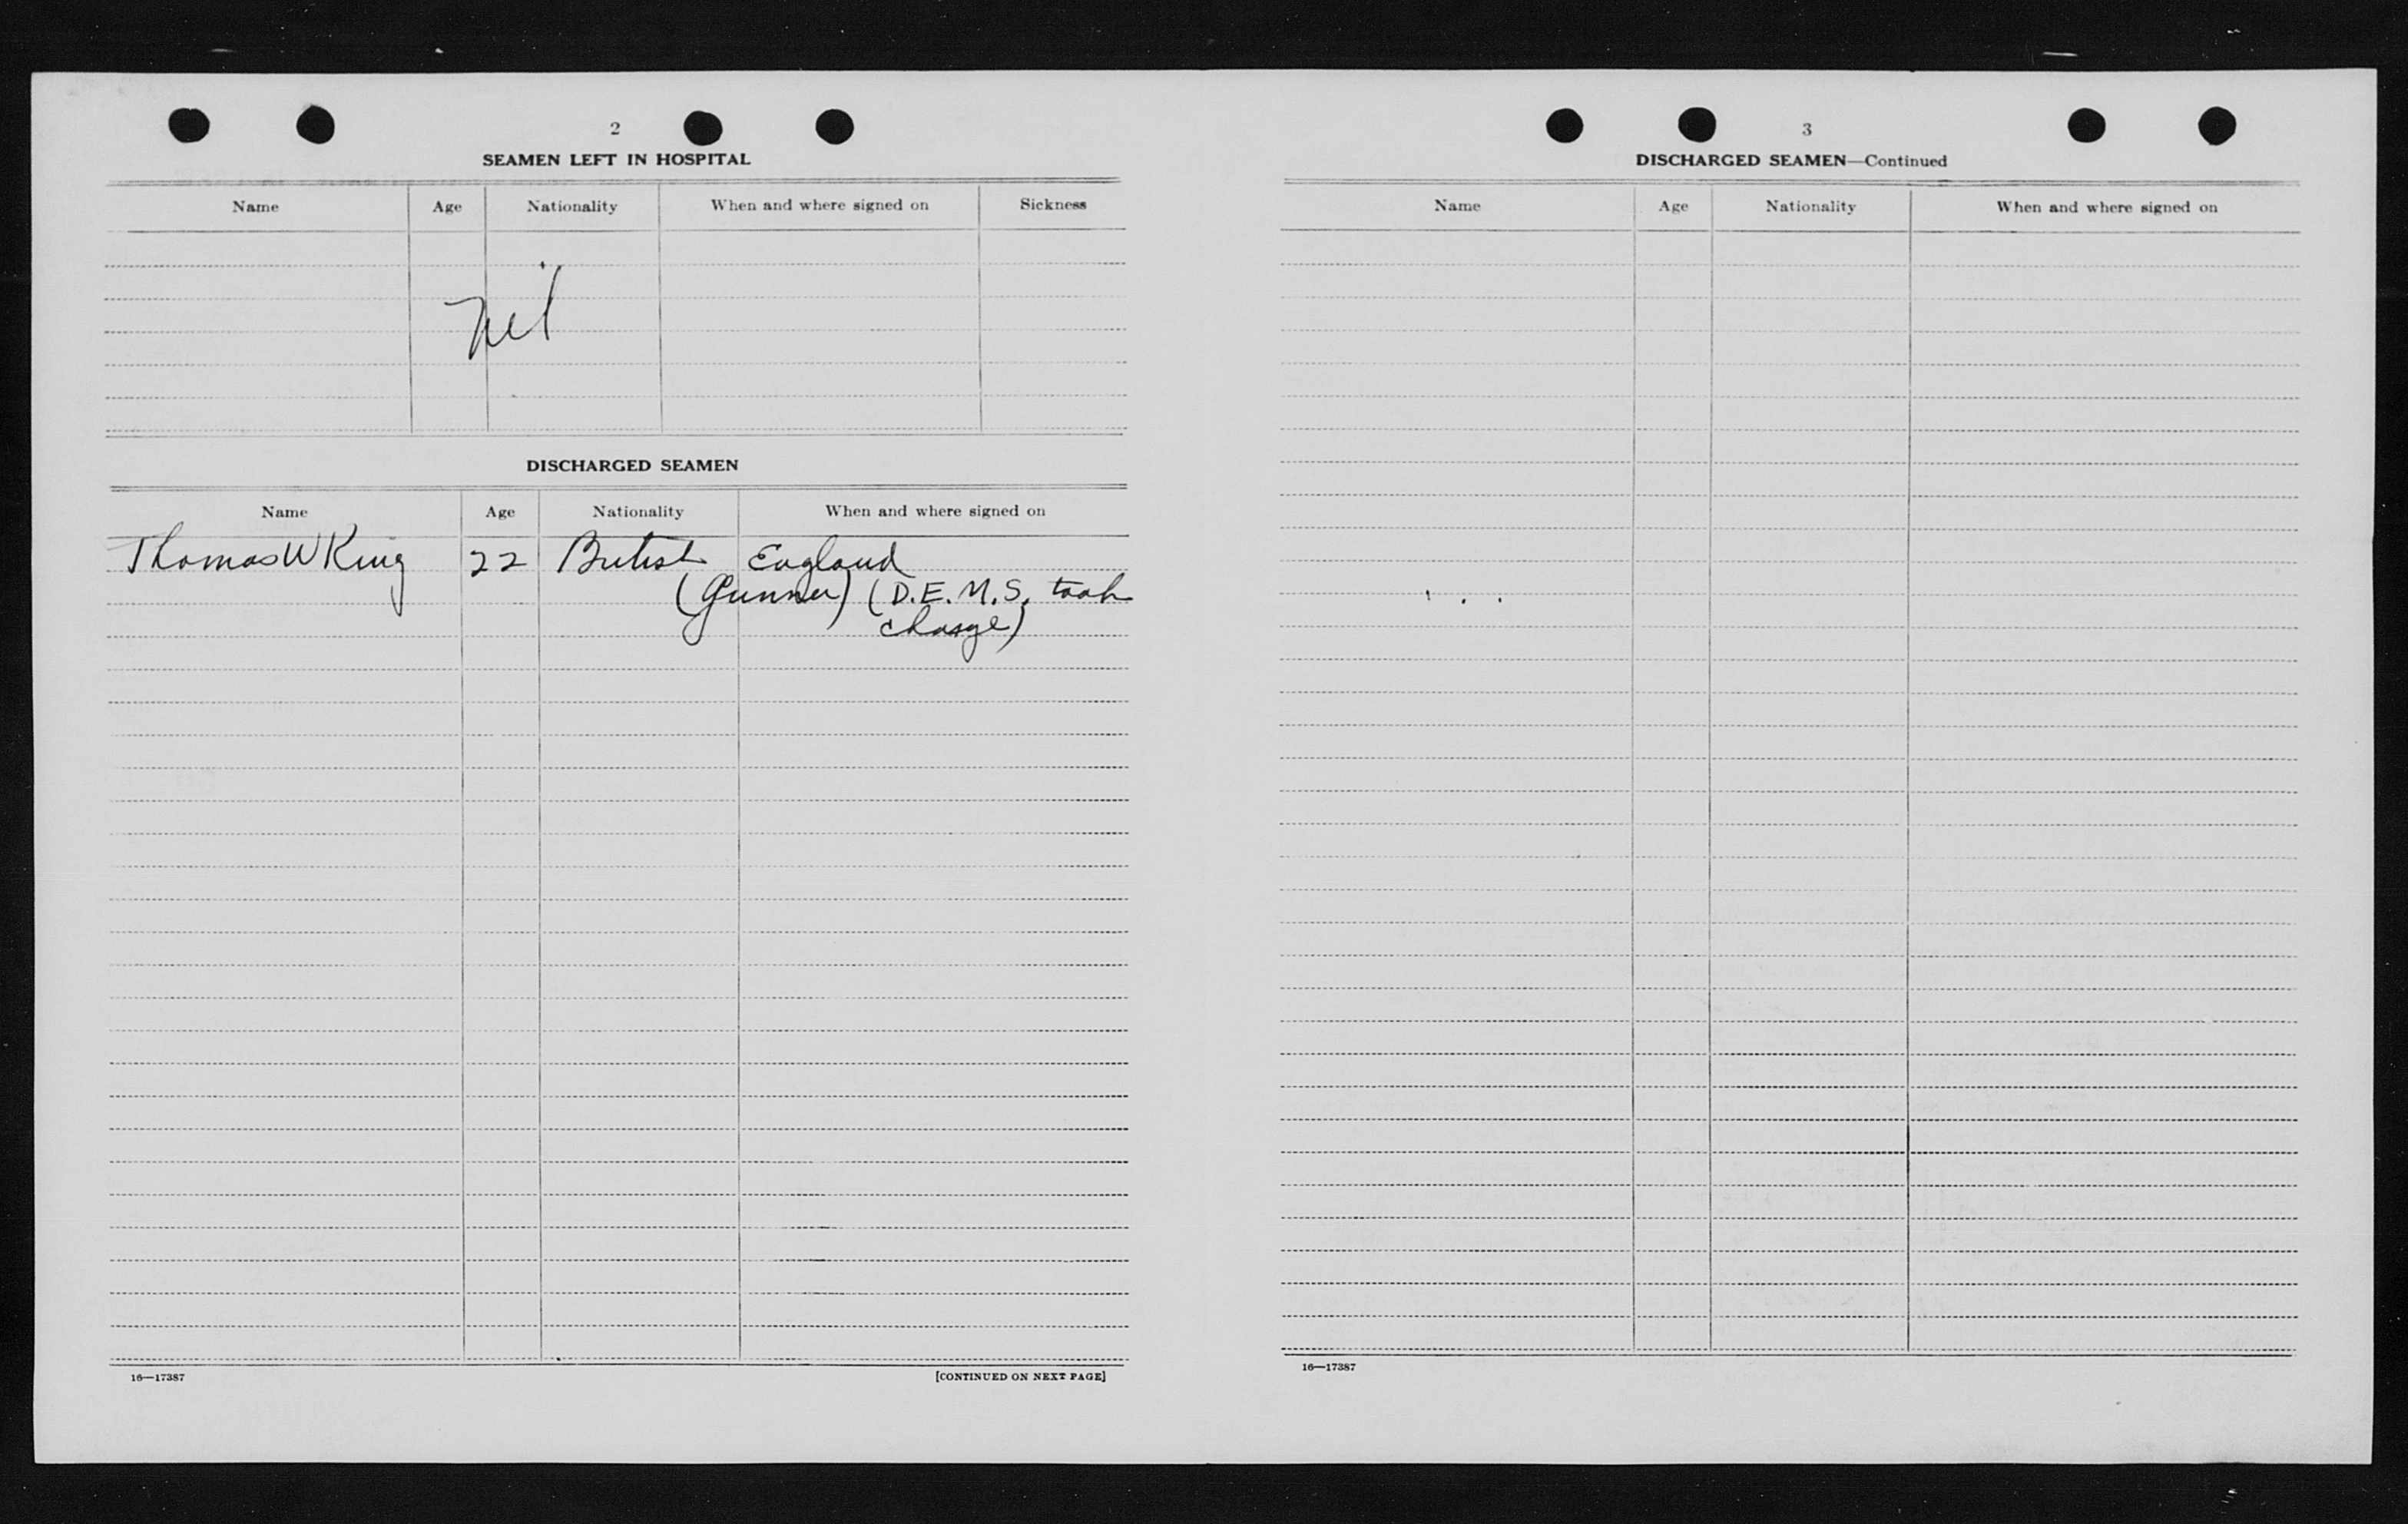 2
SEAMEN LEFT IN HOSPITAL
Name Age Nationality When and where signed on Sickness
Nil
DISCHARGED SEAMEN
Name Age Nationality When and where signed on
Thomas W King 22 British England
(Gunner) (D.E.M.S. took
charge)
16—17387 [CONTINUED ON NEXT PAGE]
3
DISCHARGED SEAMEN—Continued
Name Age Nationality When and where signed on
16—17387